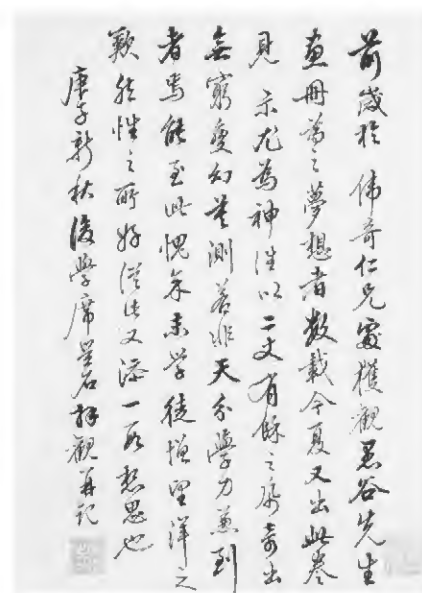 前歲於偉奇仁兄處獲觀愚谷先生
畫冊為之夢想者數載今夏又出此卷
見示尤為神往以二丈有餘之勢奇出
無窮變幻莫測若非天分學力兼到
者焉能至此愧余末學徒增望洋之
歎然性之所好從此又添一段愁思也
庚子新秋後學席 石拜觀再記